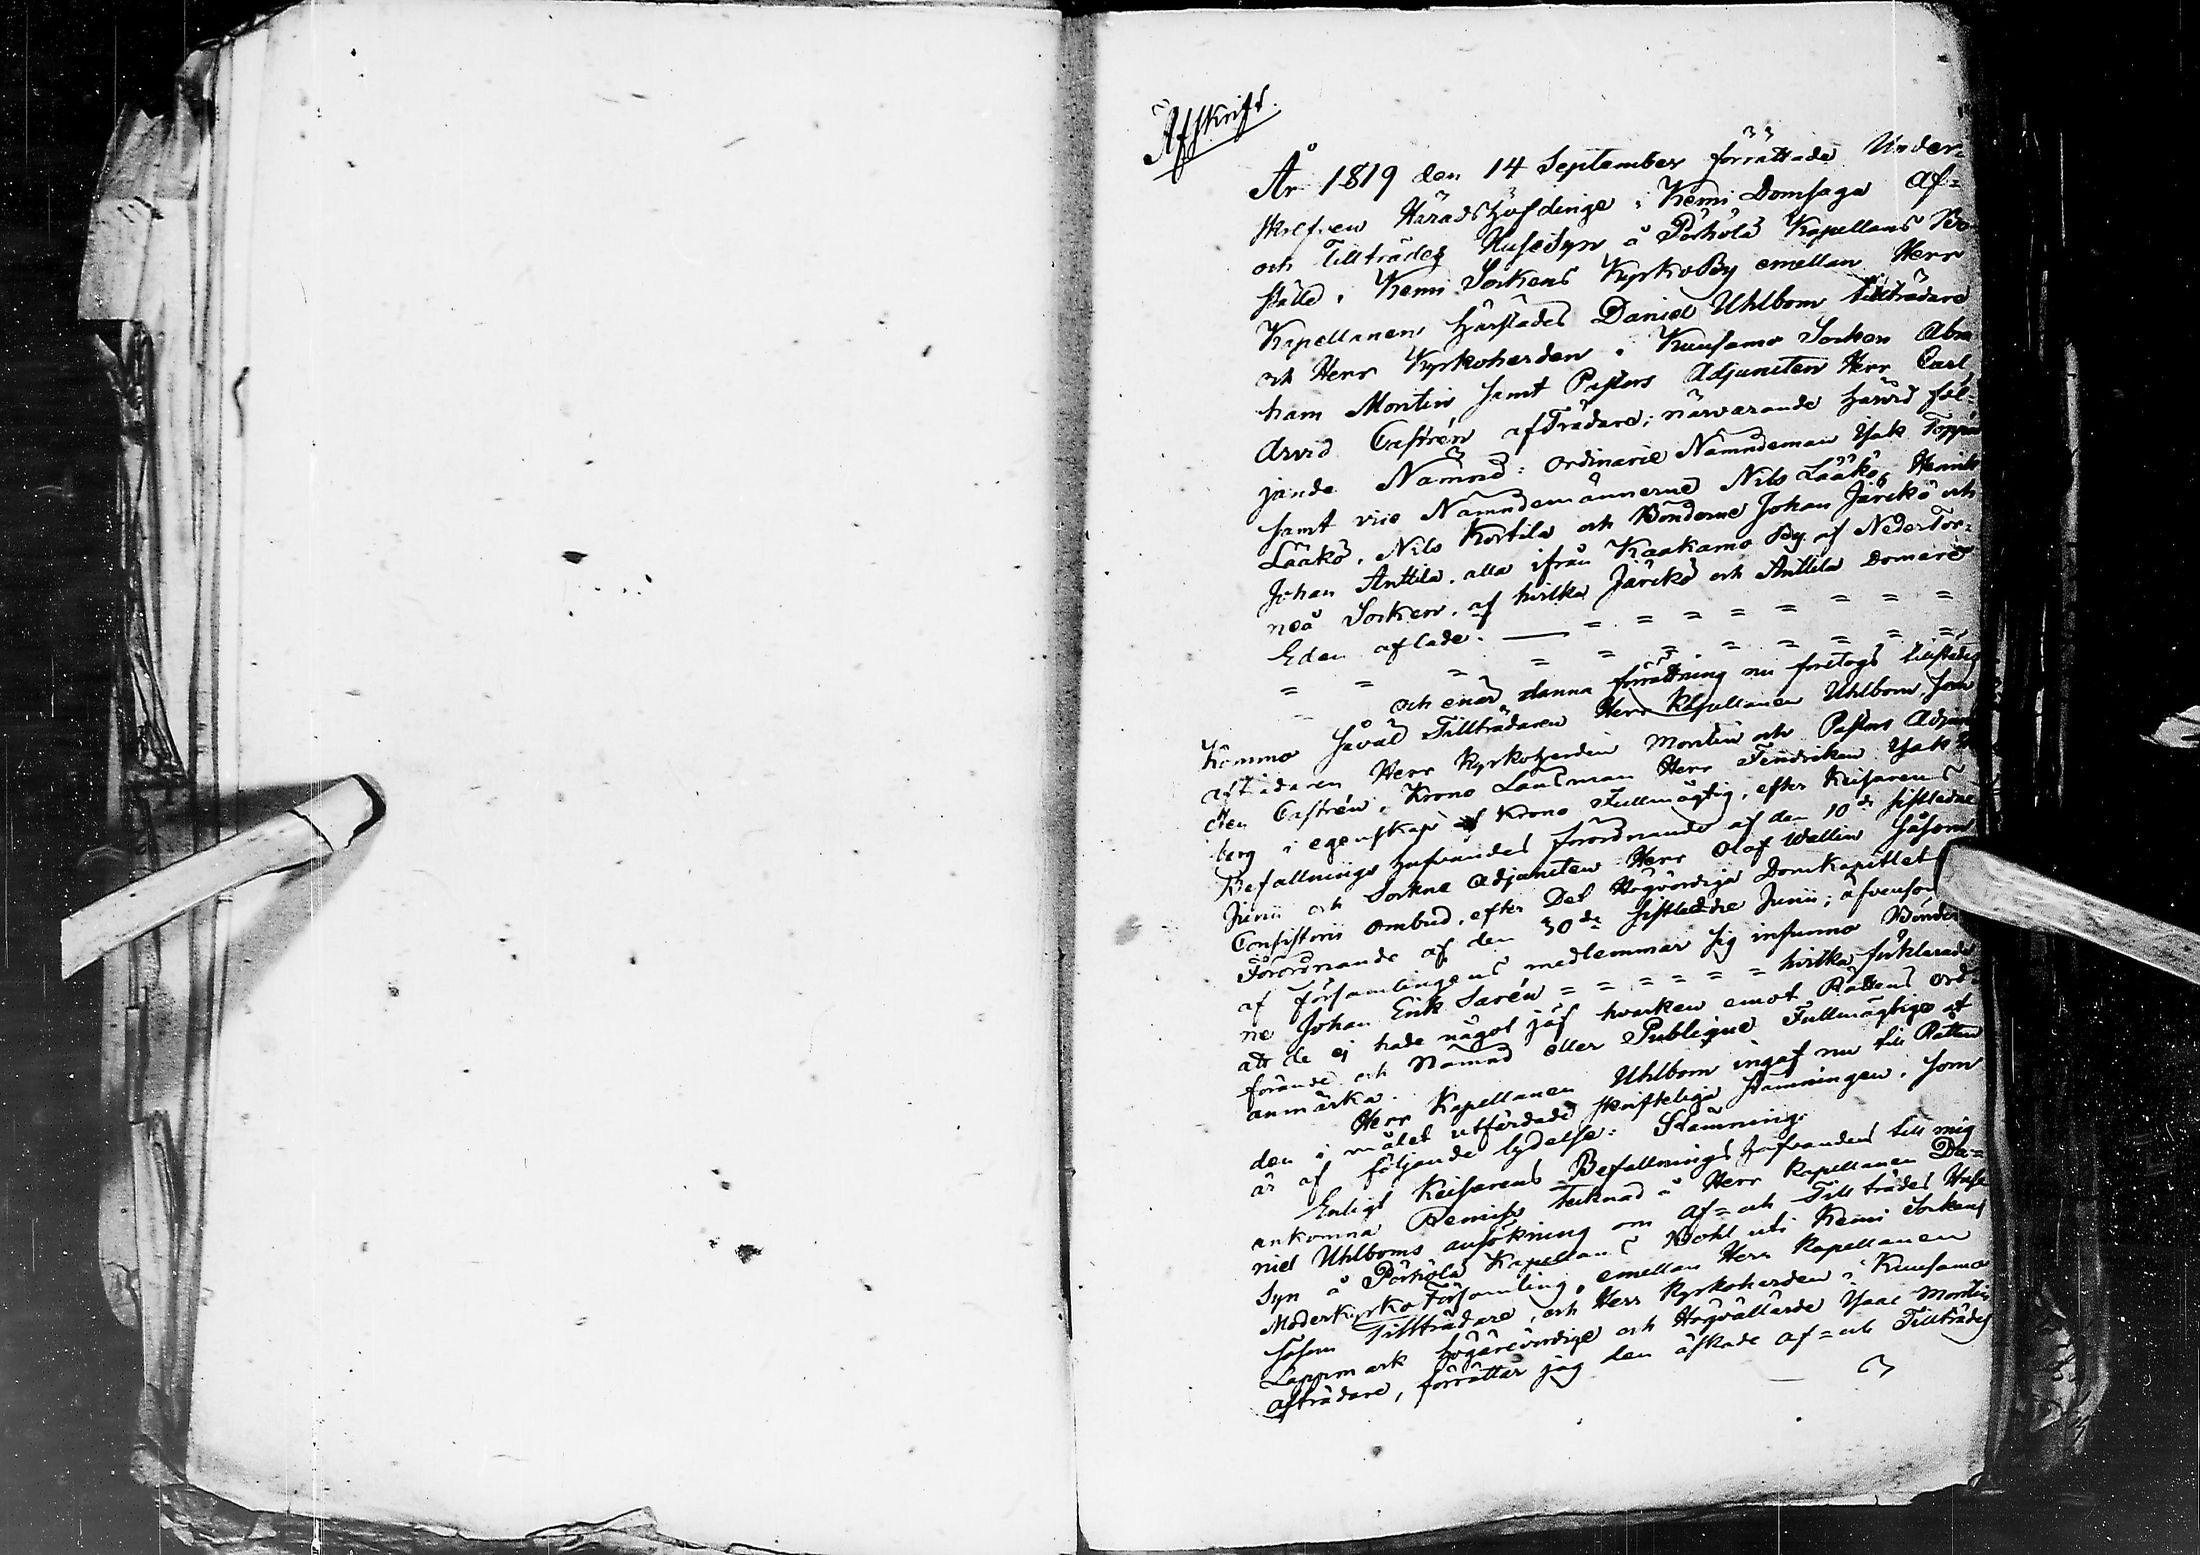 Afskrift.
År 1819 den 14 September förrättade Under-
skrefven Häradshöfdinge i Kemi Domsaga Af=
och Tillträdes Husesyn å Pörhölä Kapellans Bo
ställe i Kemi Sockens KyrkoBy emellan Herr
Kapellanen härstädes Daniel Uhlbom tillträdare
och Herr Kyrkoherden i Kuusamo Socken Abra
ham Montin samt Pastors Adjuncten Herr Carl
Arvid Castrén afträdare; närvarande härvid föl-
jande Nämnd: ordinarie Nämndeman Isak Toppi
samt vice Nämndemännerne Nils Lääkö, Henrik
Lääkö, Nils Kortila och Bönderne Johan Järikö och
Johan Anttila, alla ifrån Kaakamo By af NederTor-
neå Socken, af hvilka Järikö och Anttila Domare
Eden aflade. — = = = = = = = =
= = = = = = = = = =
och enär denna förrättning nu företogs tillstädes
kommo såväl Tillträdaren Herr Kapellanen Uhlbom, som
afträdaren Herr Kyrkoherden Montin och Pastors Adjunc
ten Castrén, Krono Länsman Herr Fendriken Isak
berg i egenskap af Krono Fullmägtig, efter Keisarens
Befallnings hafvandes förordnande af den 10de sistledne
Junii och Sockne Adjuncten Herr Olof Wallin såsom
Consistorii ombud, efter Det Högvördiga Domkapitlets
Förordnande af den 30de sistledne Junii; äfvensom
af församlingens medlemmar sig infunno Bönder
ne Johan Erik Sarén = = = = = = hvilka förklarade
att de ej hade något jäf hvarken emot Rättens ord-
förande och Nämnd eller Publique Fullmägtige at
anmärka.
Herr Kapellanen Uhlbom ingaf nu till Rätten
den i målet utfärdade skrifteliga stämningen, som
är af följande lydelse: Stämning:
Enligt Keisarens Befallnings hafvandes till mig
ankomna Remiss tecknad å Herr Kapellanen Da=
niel Uhlboms ansökning om af= och Tillträdes Huse
Syn å Pörhölä Kapellans Bohl uti Kemi Sockens
Moderkyrko Församling, emellan Herr Kapellanen
såsom Tillträdare, och Herr Kyrkoherden i Kuusamo
Lappmark högärevördige och Högvällärde Isaac Montin
afträdare, förrättar jag den äskade af= och Tillträdes